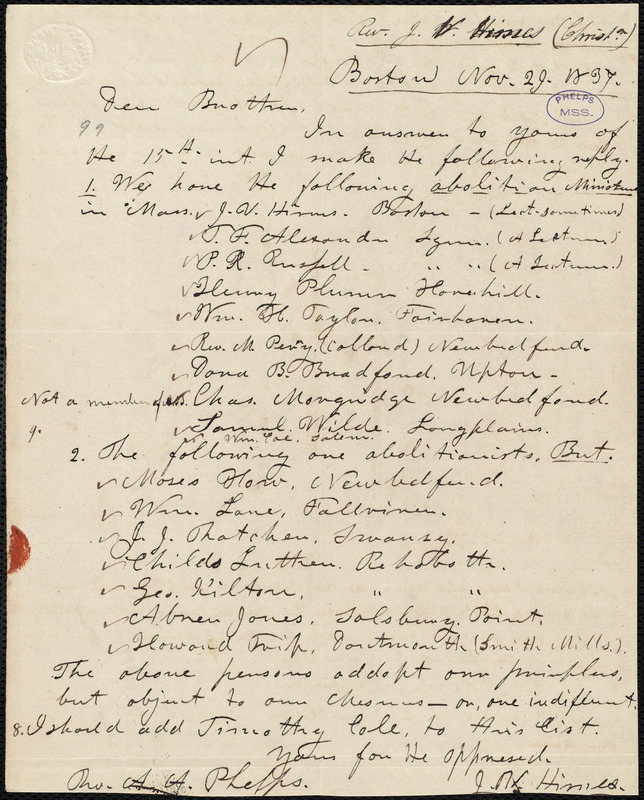 Rev. J. V. Himes (Christn)
Boston Nov. 29. 1837.
PHELPS
MSS.
Dear Brother,
99
In answer to yours of
the 15th. int I make the following reply.
1. We have the following abolition Ministers
in Mass. J. V. Himes. Boston - (Lect-sometimes)
J. F. Alexander Lynn. (A Lecturer)
P. R. Russell. " " (A Lecturer.)
Henry Plumm Haverhill.
Wm. H. Taylor. Fairhaven.
Rev. M. Perry. (collored) Newbedford.
Dana B. Bradford. Upton -
Not a member of Chas. Morgridge Newbedford.
9. Samuel Wilde. Longplains.
Wm. Coe, Salem.
2. The following are abolitionists, But.
Moses How, Newbedford.
Wm. Lane, Fallriver.
J. J. Thatcher, Swansy.
Childs Luther. Rehoboth.
Geo. Kilton, " "
Abner Jones, Salsbury Point.
Howard Trip, Dartmouth (Smith Mills.)
The above persons addopt our prinples,
but object to our measures - or, are indifferent.
8. I should add Timothy Cole, to this list.
Yours for the oppressed.
Rev. A. A. Phelps. J. V. Himes.